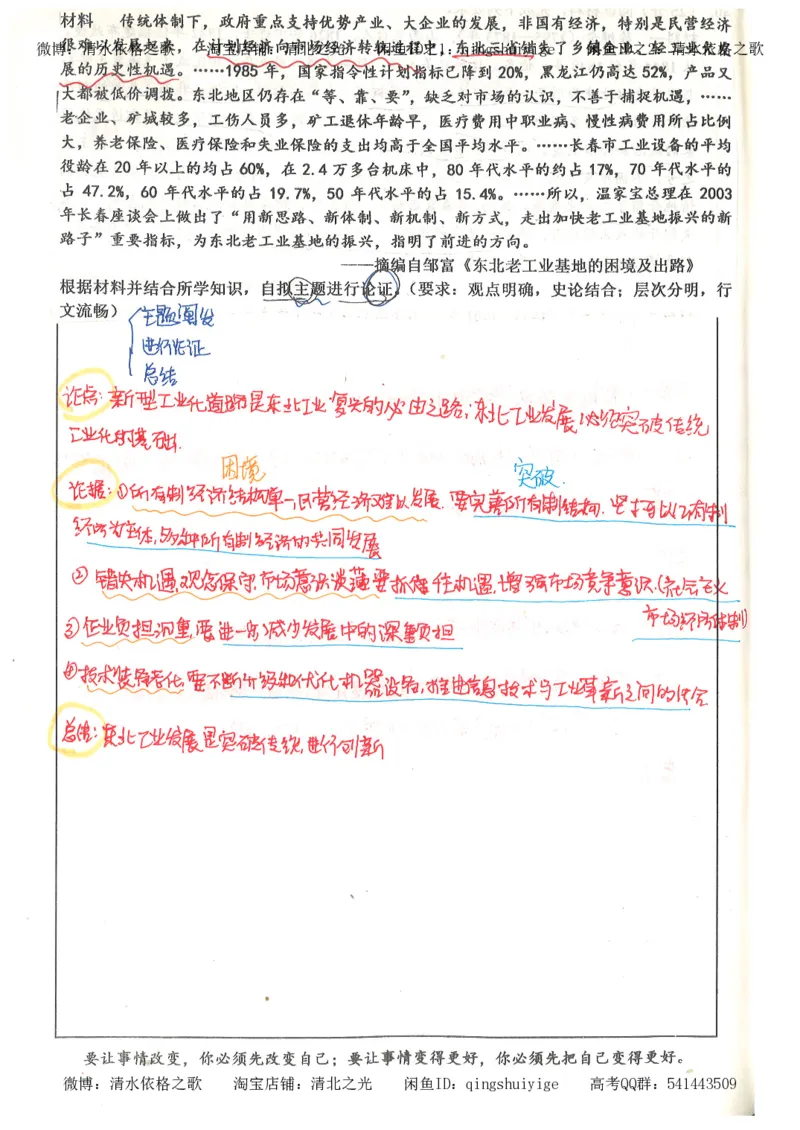 材料　传统体制下，政府重点支持优势产业、大企业的发展，非国有经济，特别是民营经济
很难以发展起来，在计划经济向市场经济转轨进程中，东北三省错失了乡镇企业、轻工业大发
微博：清水依格之歌　淘宝店铺：清北之光
展的历史性机遇。……1985 年，国家指令性计划指标已降到 20%，黑龙江仍高达 52%，产品又
大都被低价调拨。东北地区仍存在“等、靠、要”，缺乏对市场的认识，不善于捕捉机遇，……
老企业、矿城较多，工伤人员多，矿工退休年龄早，医疗费用中职业病、慢性病费用所占比例
大，养老保险、医疗保险和失业保险的支出均高于全国平均水平。……长春市工业设备的平均
役龄在 20 年以上的均占 60%，在 2.4 万多台机床中，80 年代水平的约占 17%，70 年代水平的
占 47.2%，60 年代水平的占 19.7%，50 年代水平的占 15.4%。……所以，温家宝总理在 2003
年长春座谈会上做出了“用新思路、新体制、新机制、新方式，走出加快老工业基地振兴的新
路子”重要指标，为东北老工业基地的振兴，指明了前进的方向。
——摘编自邹富《东北老工业基地的困境及出路》
根据材料并结合所学知识，自拟主题进行论证。（要求：观点明确，史论结合；层次分明，行
文流畅）
主题阐发
进行论证
总结
论点：新型工业化道路是东北工业复兴的必由之路，东北工业发展必须突破传统
工业化的基础.
困境　突破
论据：①所有制经济结构单一，民营经济难以发展，要完善所有制结构，坚持以公有制
经济为主体，多种所有制经济的共同发展
②错失机遇，观念保守，市场意识淡薄，要抓住机遇，增强市场竞争意识.（社会主义
市场经济体制）
③企业负担沉重，要进一步减少发展中的沉重负担
④技术装备老化，要不断升级和优化机器设备，推进信息技术与工业革新之间的结合
总结：东北工业发展是突破传统，进行创新
要让事情改变，你必须先改变自己；要让事情变得更好，你必须先把自己变得更好。
微博：清水依格之歌　淘宝店铺：清北之光　闲鱼ID：qingshuiyige　高考QQ群：541443509